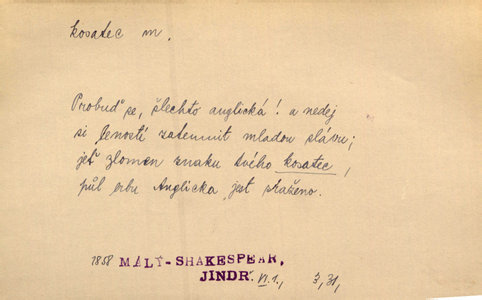 kosatec m.
Probuď se, šlechto anglická! a nedej
si leností zatemnit mladou slávu;
jesť zlomen znaku tvého kosatec,
půl erbu Anglicka jest skaženo.
1858 MALÝ-SHAKESPEAR,
JINDR. VI. 1., 3, 31,